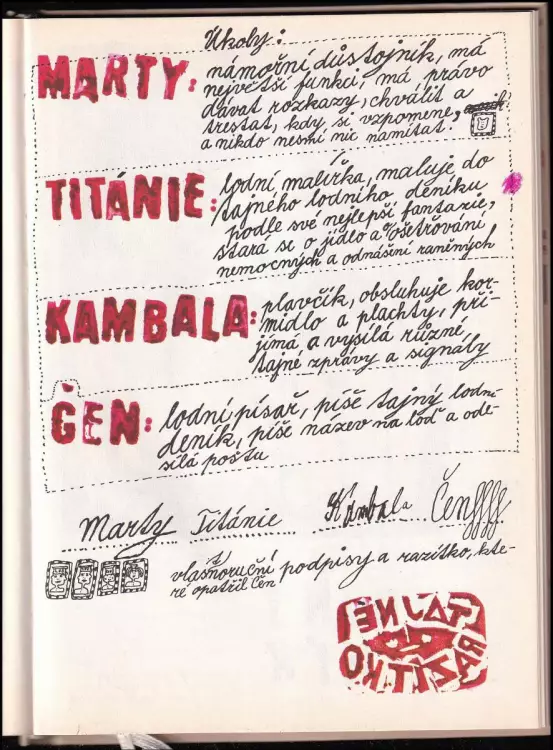 Úkoly:
MARTY: námořní důstojník, má
největší funkci, má právo
dávat rozkazy, chválit a
trestat, kdy si vzpomene,
a nikdo nesmí nic namítat!
TITÁNIE: lodní malířka, maluje do
tajného lodního deníku
podle své nejlepší fantazie,
stará se o jídlo a ošetřování
nemocných a odnášení raněných
KAMBALA: plavčík, obsluhuje kor-
midlo a plachty, při-
jímá a vysílá různé
tajné zprávy a signály
ČEN: lodní písař, píše tajný lodní
deník, píše název na loď a ode-
sílá poštu
Marty Titánie Kambala Čenffff
vlastnoruční podpisy a razítko, kte-
ré opatřil Čen
TAJNÉ
RAZÍTKO